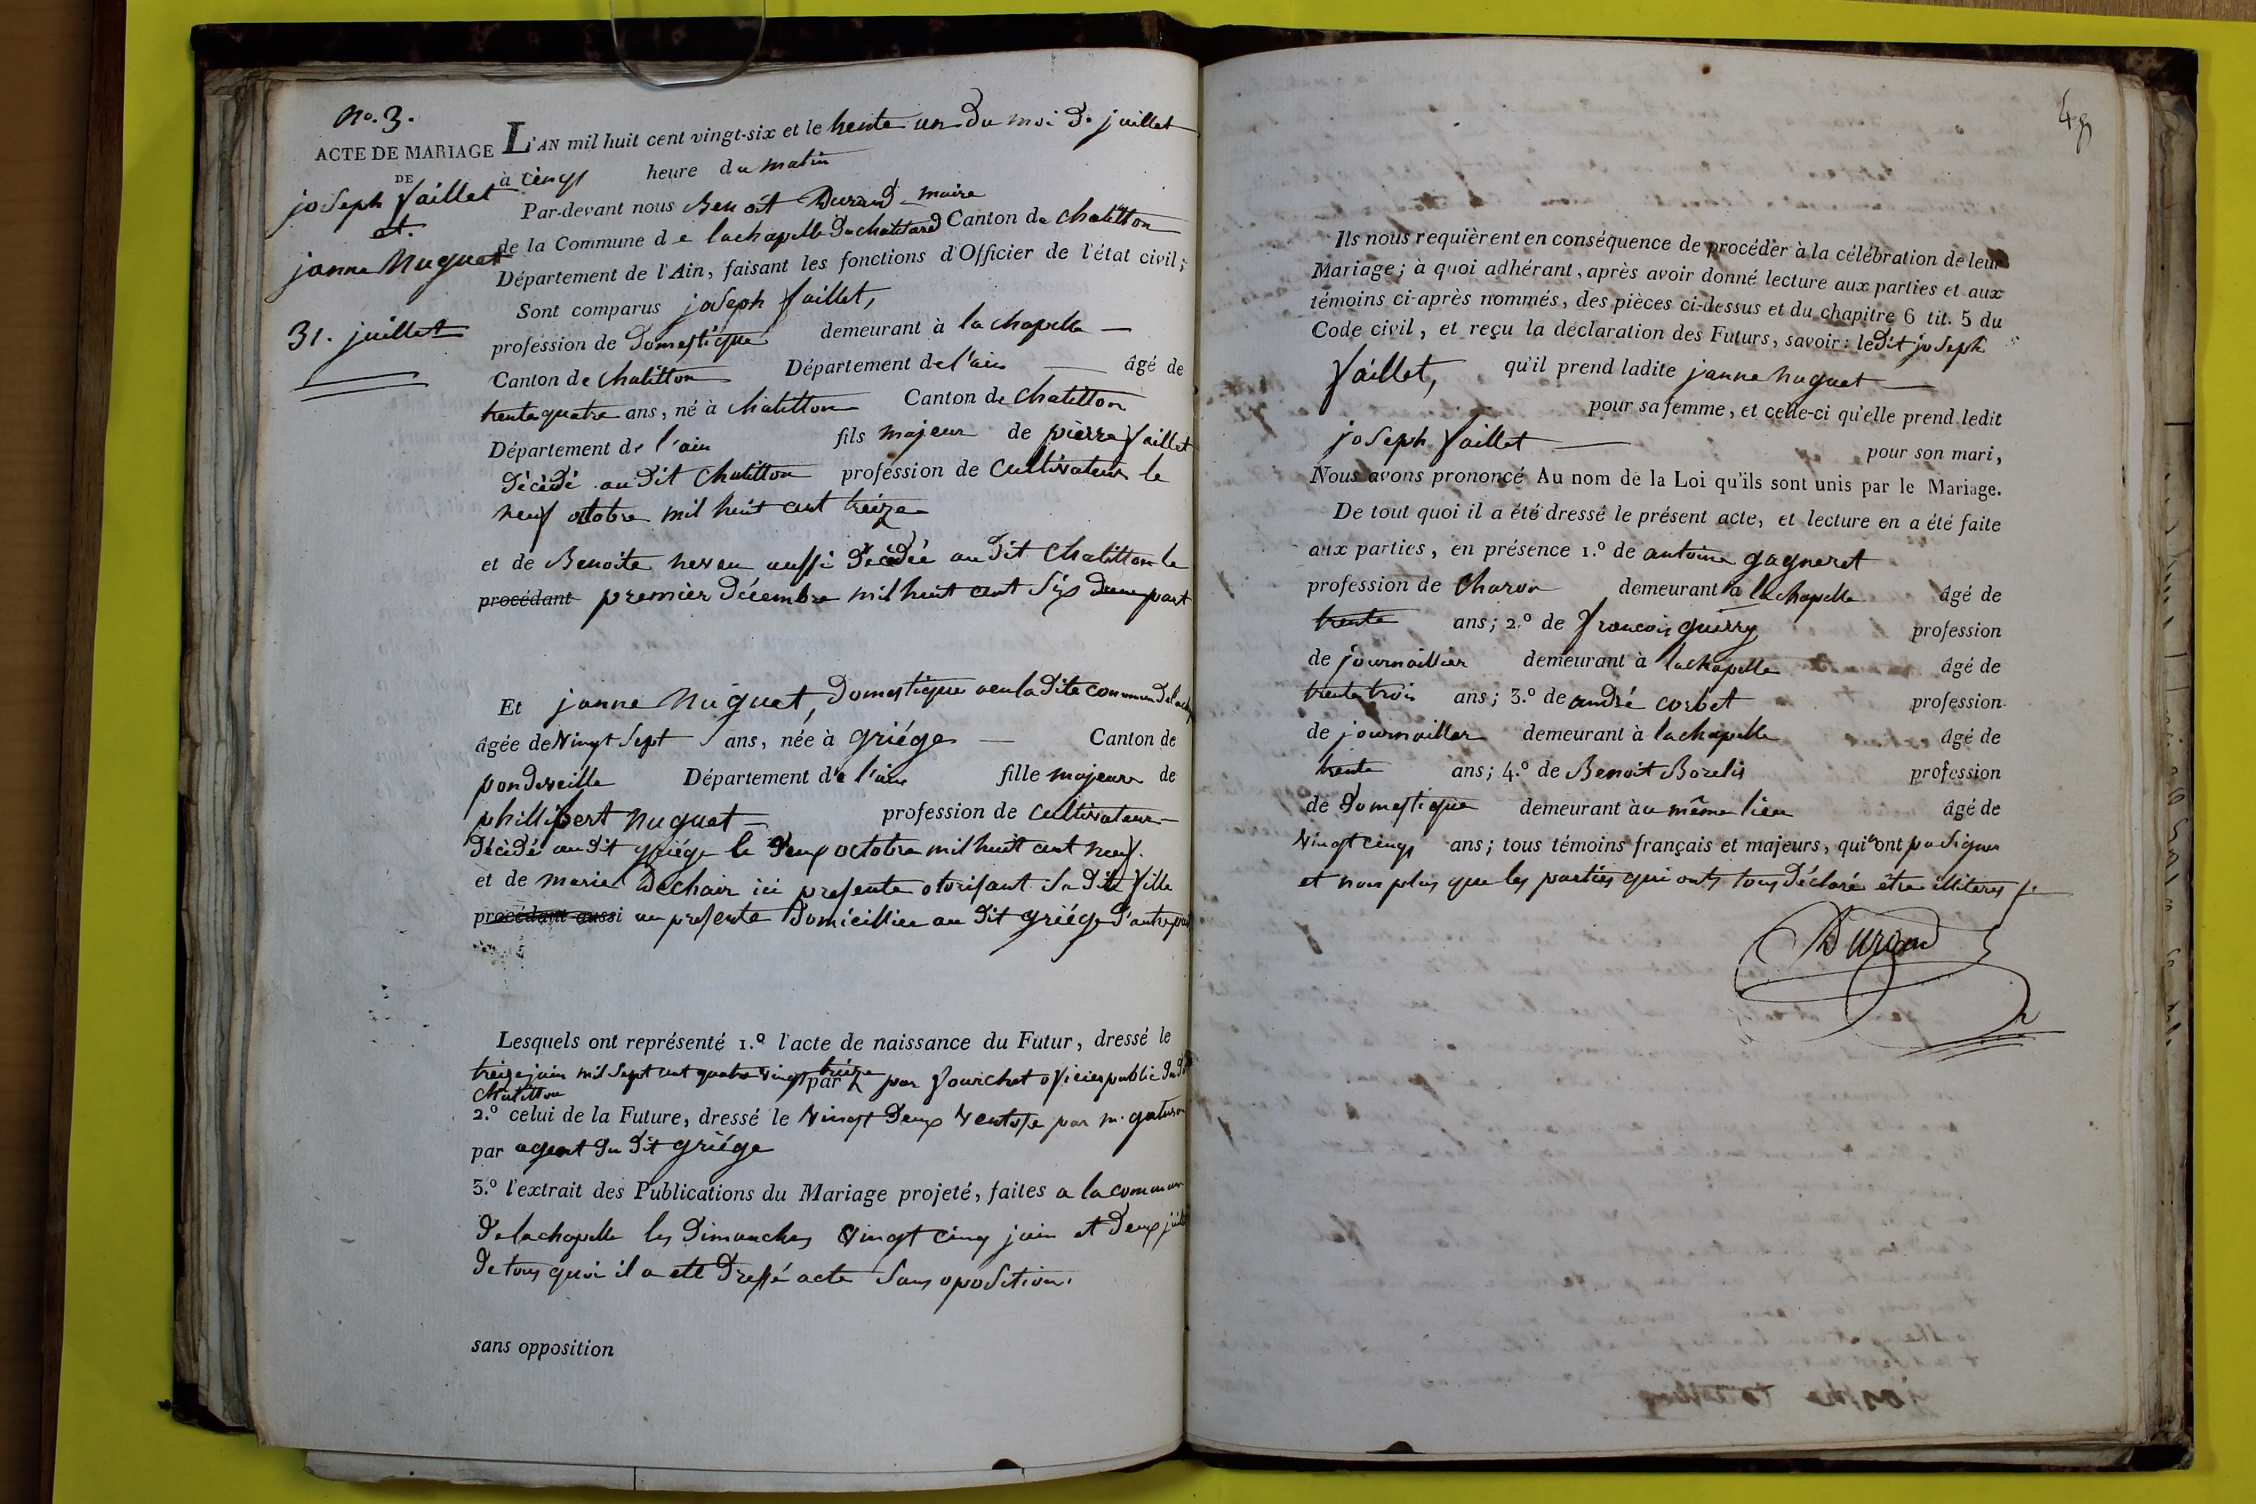 No. 3.
ACTE DE MARIAGE
DE
joseph Vaillet
et
janne Nuguet
31. juillet
L'AN mil huit cent vingt-six et le trente un du moi de juillet
à cinq heure du matin
Par-devant nous Benoit Durand maire
de la Commune de lachapelle du chatelard Canton de chatillon
Département de l'Ain, faisant les fonctions d'Officier de l'état civil;
Sont comparus joseph Vaillet,
profession de Domestique demeurant à la chapelle —
Canton de chatillon Département de l'ain — âgé de
trente quatre ans, né à chatillon Canton de Chatillon
Département de l'ain fils majeur de pierre Vaillet
décédé au dit chatillon profession de cultivateur le
neuf octobre mil huit cent treize
et de Benoite neveu aussi décédée au dit Chatillon le
procédant premier décembre mil huit cent six d'une part
Et janne Nuguet, domestique a en la dite commun de lachap
âgée de Vingt sept ans, née à griége — Canton de
pondeveille Département de l'ain fille majeure de
phillibert nuguet — profession de cultivateur —
décédé au dit griége le deux octobre mil huit cent neuf.
et de marie Dechair ici presente otorisant sa dite fille
procédant aussi au presente domicilliee au dit griége d'autre part
Lesquels ont représenté 1.º l'acte de naissance du Futur, dressé le
treize juin mil sept cent quatre vingt treize par par Vourichet oficier public du dit
Chatillon
2.º celui de la Future, dressé le Vingt deux Ventose par m.
par agent du dit griége
3.º l'extrait des Publications du Mariage projeté, faites a la commune
de lachapelle les dimanches Vingt cinq juin et deux juillet
de tous quoi il a eté dressé acte sans oposition.
sans opposition
48
Ils nous requièrent en conséquence de procéder à la célébration de leur
Mariage; à quoi adhérant, après avoir donné lecture aux parties et aux
témoins ci-après nommés, des pièces ci-dessus et du chapitre 6 tit. 5 du
Code civil, et reçu la déclaration des Futurs, savoir: ledit joseph
Vaillet, qu'il prend ladite janne nuguet —
pour sa femme, et celle-ci qu'elle prend ledit
joseph Vaillet — pour son mari,
Nous avons prononcé Au nom de la Loi qu'ils sont unis par le Mariage.
De tout quoi il a été dressé le présent acte, et lecture en a été faite
aux parties, en présence 1.º de antoine gagneret
profession de Charon demeurant à la chapelle âgé de
trente ans; 2.º de francois guerry profession
de journaillier demeurant à lachapelle âgé de
trente trois ans; 3.º de andré corbet profession
de journaillier demeurant à lachapelle âgé de
trente ans; 4.º de Benoit Bozelis profession
de Domestique demeurant à au même lieu âgé de
Vingt cinq ans; tous témoins français et majeurs, qui n'ont pu signer
et non plus que les parties qui onts tous déclaré être illiteres
Durand